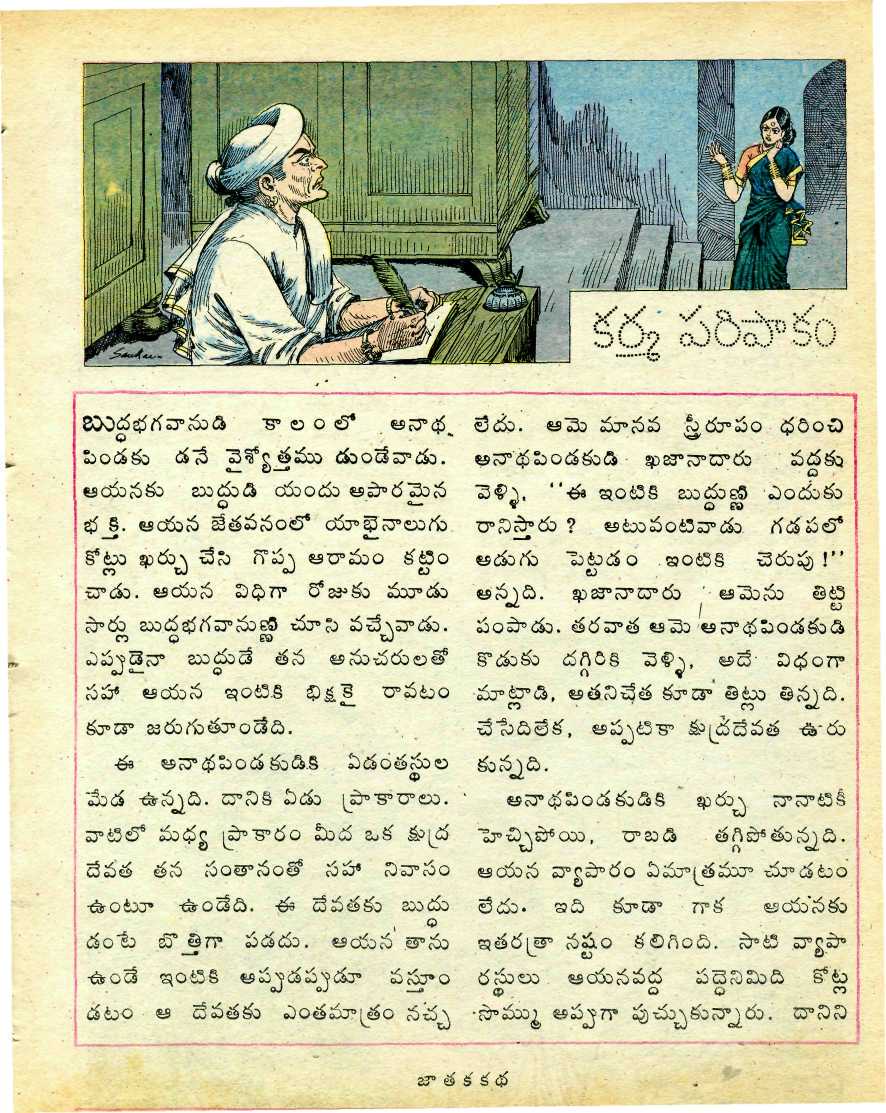 Sankar
కర్మ పరిపాకం
బుద్ధభగవానుడి కాలంలో అనాథ
పిండకు డనే వైశ్యోత్తము డుండేవాడు.
ఆయనకు బుద్ధుడి యందు అపారమైన
భక్తి. ఆయన జేతవనంలో యాభైనాలుగు
కోట్లు ఖర్చు చేసి గొప్ప ఆరామం కట్టిం
చాడు. ఆయన విధిగా రోజుకు మూడు
సార్లు బుద్ధభగవానుణ్ణి చూసి వచ్చేవాడు.
ఎప్పుడైనా బుద్ధుడే తన అనుచరులతో
సహా ఆయన ఇంటికి భిక్షకై రావటం
కూడా జరుగుతూండేది.
ఈ అనాథపిండకుడికి ఏడంతస్థుల
మేడ ఉన్నది. దానికి ఏడు ప్రాకారాలు.
వాటిలో మధ్య ప్రాకారం మీద ఒక క్షుద్ర
దేవత తన సంతానంతో సహా నివాసం
ఉంటూ ఉండేది. ఈ దేవతకు బుద్ధు
డంటే బొత్తిగా పడదు. ఆయన తాను
ఉండే ఇంటికి అప్పుడప్పుడూ వస్తూం
డటం ఆ దేవతకు ఎంతమాత్రం నచ్చ
లేదు. ఆమె మానవ స్త్రీరూపం ధరించి
అనాథపిండకుడి ఖజానాదారు వద్దకు
వెళ్ళి, ‘‘ఈ ఇంటికి బుద్ధుణ్ణి ఎందుకు
రానిస్తారు ? అటువంటివాడు గడపలో
అడుగు పెట్టడం ఇంటికి చెరుపు !’’
అన్నది. ఖజానాదారు ఆమెను తిట్టి
పంపాడు. తరవాత ఆమె అనాథపిండకుడి
కొడుకు దగ్గిరికి వెళ్ళి, అదే విధంగా
మాట్లాడి, అతనిచేత కూడా తిట్లు తిన్నది.
చేసేదిలేక, అప్పటికా క్షుద్రదేవత ఊరు
కున్నది.
అనాథపిండకుడికి ఖర్చు నానాటికీ
హెచ్చిపోయి, రాబడి తగ్గిపోతున్నది.
ఆయన వ్యాపారం ఏమాత్రమూ చూడటం
లేదు. ఇది కూడా గాక ఆయనకు
ఇతరత్రా నష్టం కలిగింది. సాటి వ్యాపా
రస్థులు ఆయనవద్ద పద్ధెనిమిది కోట్ల
సొమ్ము అప్పుగా పుచ్చుకున్నారు. దానిని
జాతకకథ